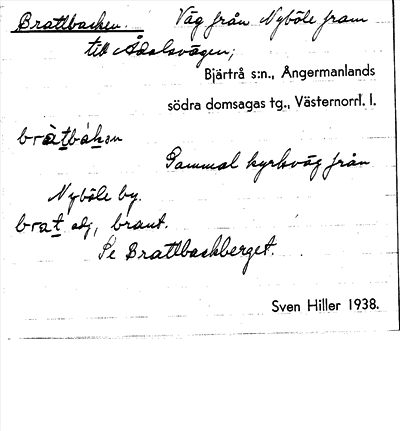 Brattbacken. Väg från Nyböle fram
till Ådalsvägen;
Bjärtrå s:n., Ångermanlands
södra domsagas tg., Västernorrl. l.
bràtbáken
Gammal kyrkväg från
Nyböle by.
brat adj, brant.
Se Brattbackberget.
Sven Hiller 1938.